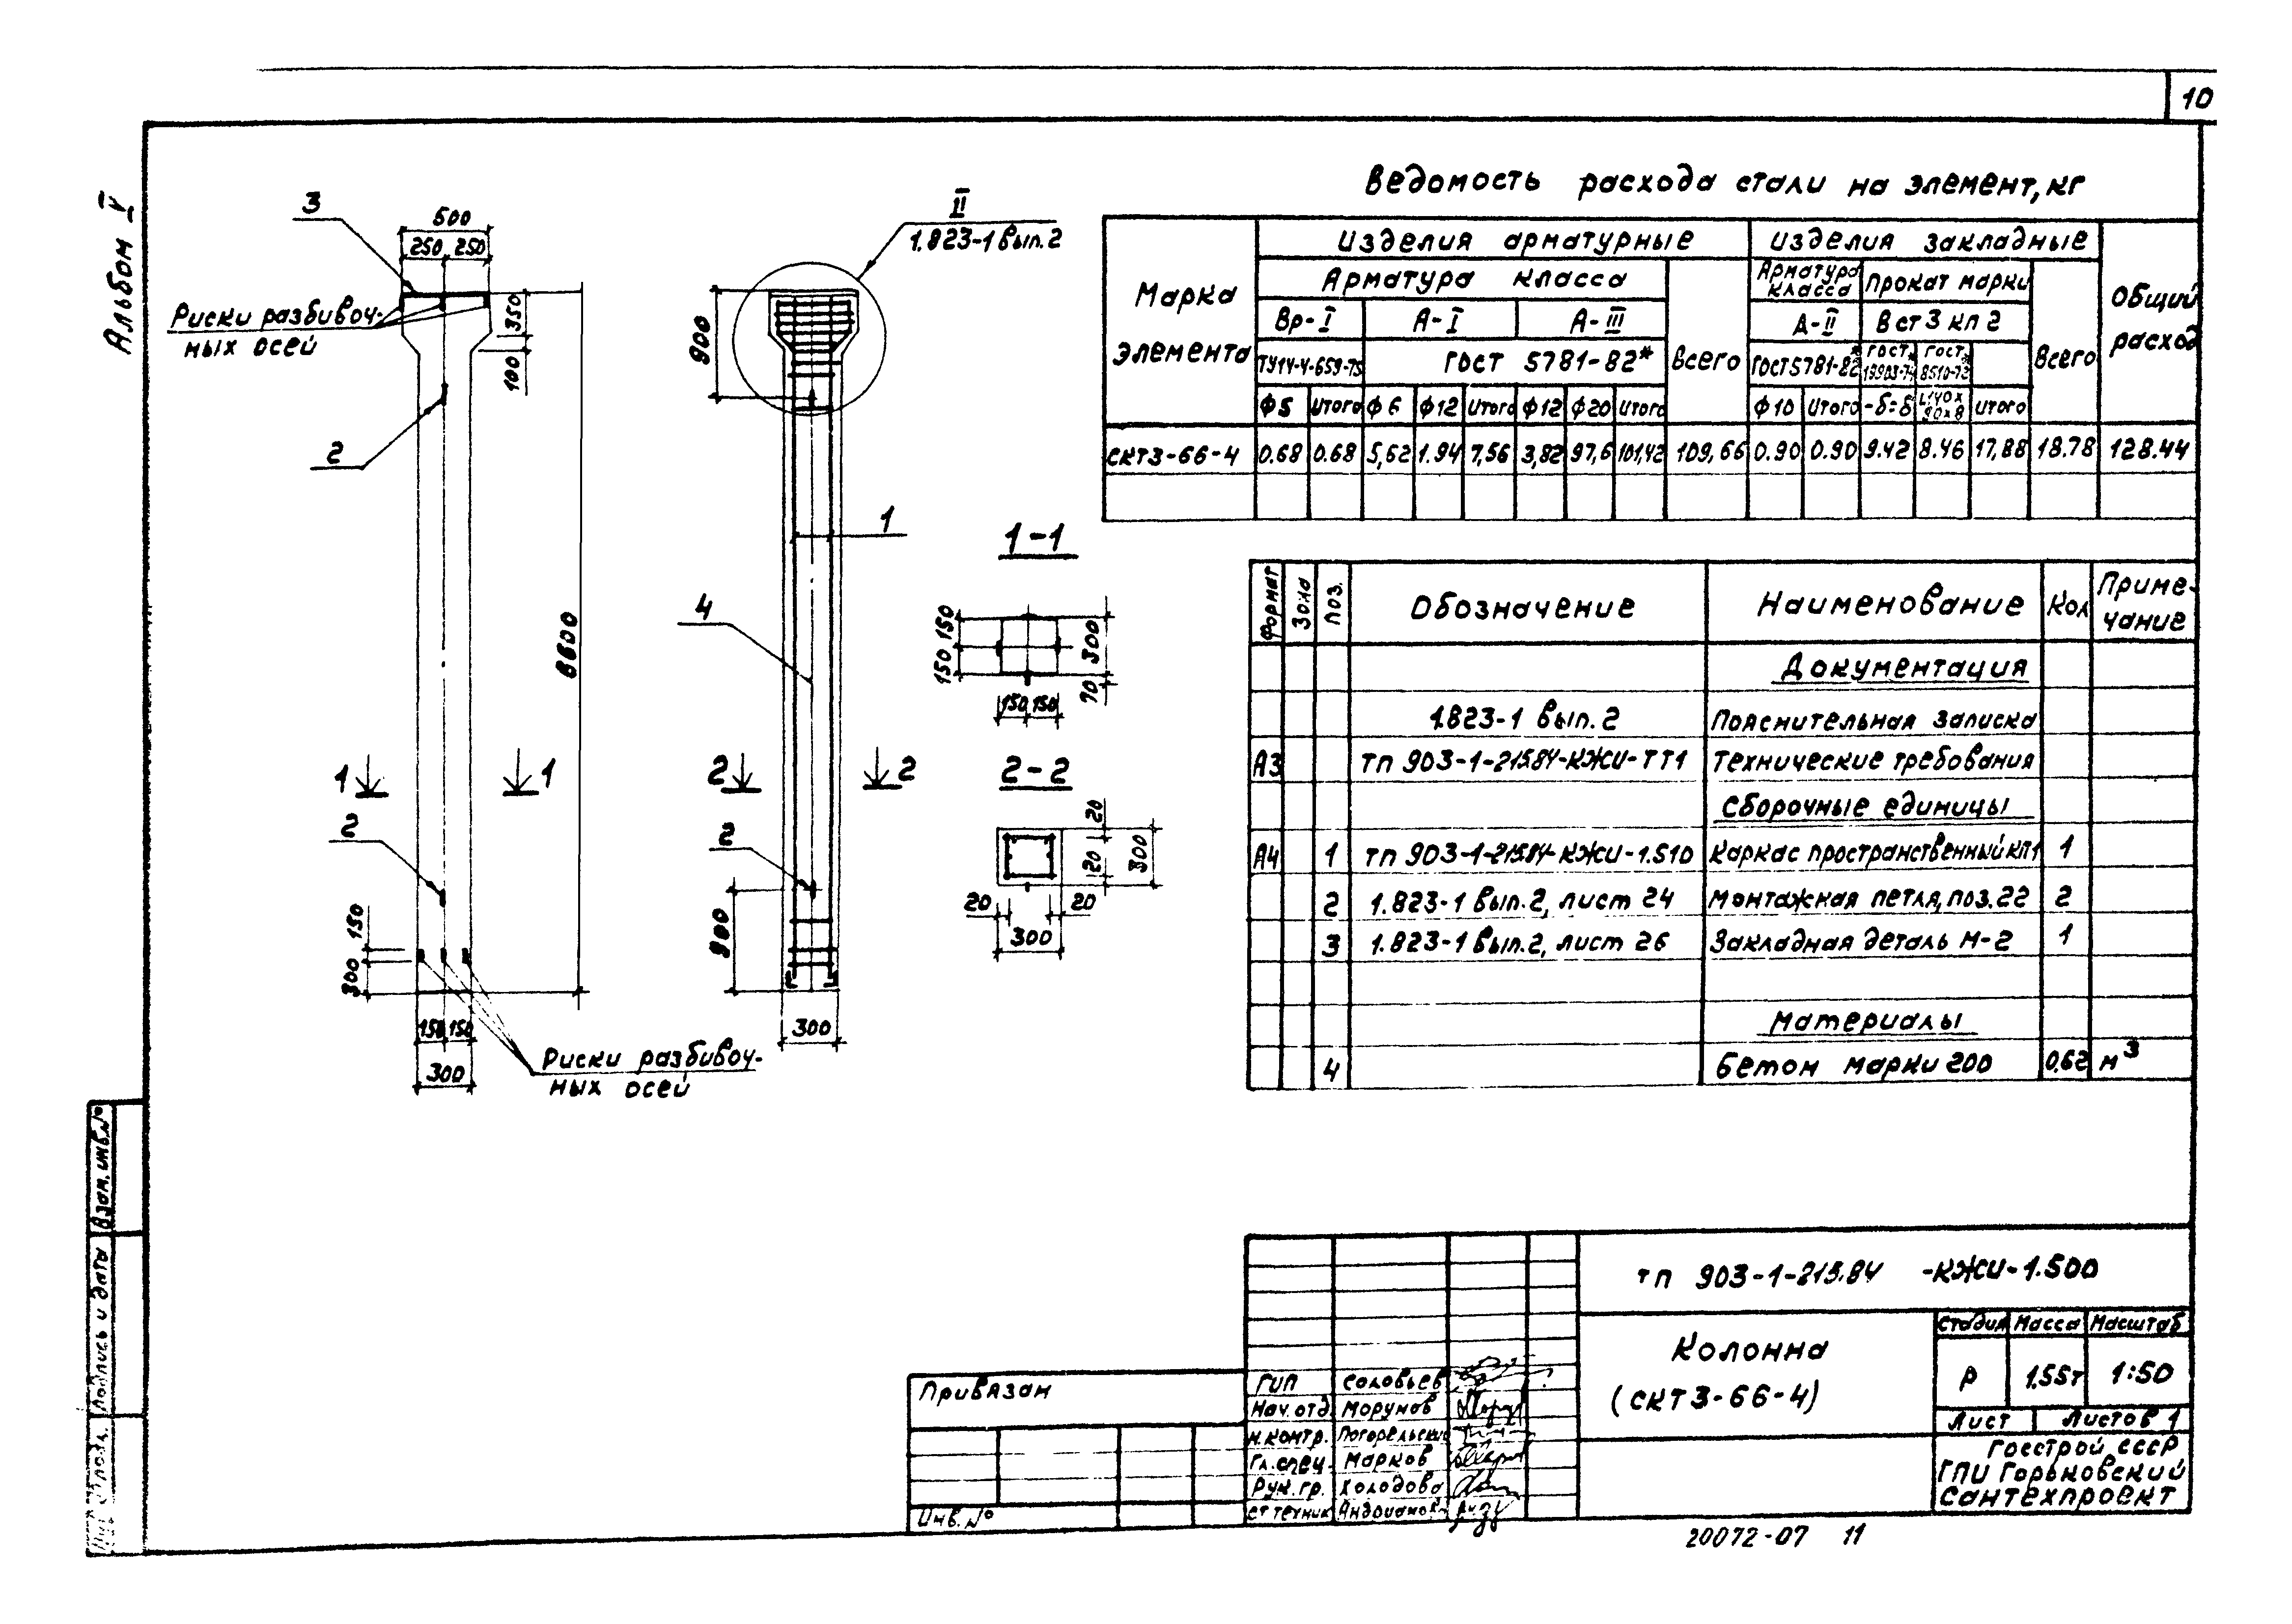 10
Альбом V
3
500
250 250
Риски разбивоч-
ных осей
350
100
2
6600
1 1
2
150
300
150 150
300
Риски разбивоч-
ных осей
II
1.823-1 вып.2
900
1
4
2 2
2
900
300
1-1
150 150
300
70
150 150
2-2
20
20
300
20 20
300
Ведомость расхода стали на элемент, кг
Марка элемента
Изделия арматурные
Изделия закладные
Общий расход
Арматура класса
Всего
Арматура класса
Прокат марки
Всего
Вр-I А-I А-III
А-II
Вст3 кп2
ТУ14-4-659-75
ГОСТ 5781-82*
ГОСТ 5781-82*
ГОСТ 19903-74*
ГОСТ 8510-72*
Ф5 Итого Ф6 Ф12 Итого Ф12 Ф20 Итого
Ф10 Итого -δ=8 L140х90х8 Итого
СКТ3-66-4 0.68 0.68 5,62 1.94 7,56 3,82 97,6 101,42 109,66 0.90 0.90 9.42 8.46 17,88 18.78 128.44
Формат Зона Поз. Обозначение Наименование Кол Примечание
Документация
1.823-1 вып.2 Пояснительная записка
А3 ТП 903-1-215.84-КЖИ-ТТ1 Технические требования
Сборочные единицы
А4 1 ТП 903-1-215.84-КЖИ-1.510 Каркас пространственный КП1 1
2 1.823-1 вып.2, лист 24 Монтажная петля, поз.22 2
3 1.823-1 вып.2, лист 26 Закладная деталь М-2 1
Материалы
4 Бетон марки 200 0,62 м3
Взам. инв.№
Подпись и дата
подл.
Привязан
Инв. №
ГИП Соловьев
Нач. отд. Морунов
Н.контр. Погорельский
Гл.спец. Марков
Рук. гр. Холодова
Ст техник
ТП 903-1-215.84 -КЖИ-1.500
Колонна
(СКТ3-66-4)
Стадия Масса Масштаб
Р 1,55т 1:50
Лист Листов 1
Госстрой СССР
ГПИ Горьковский
Сантехпроект
20072-07 11